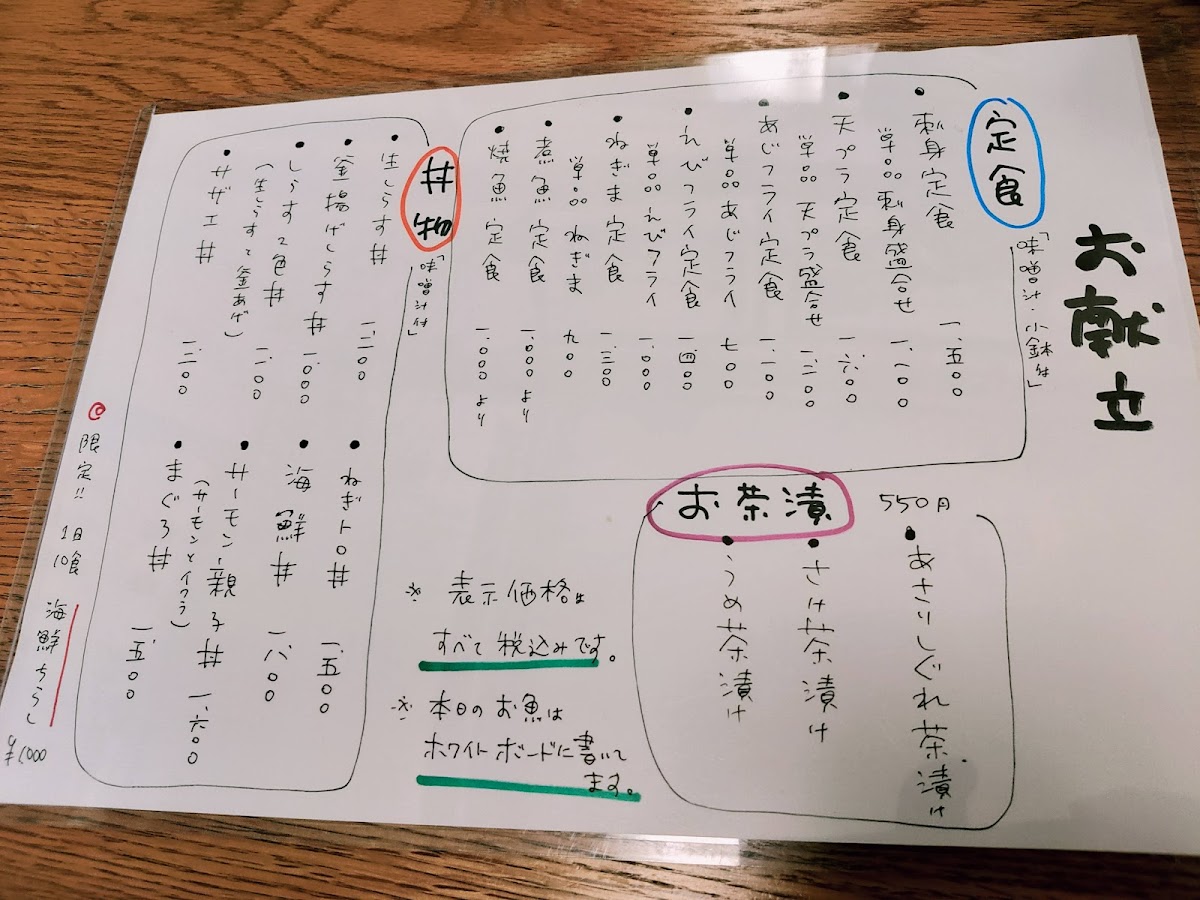 お献立
定食
「味噌汁・小鉢付」
・刺身定食 一、五〇〇
単品 刺身盛合せ 一、一〇〇
・天プラ定食 一、六〇〇
単品 天プラ盛合せ 一、二〇〇
・あじフライ定食 一、一〇〇
単品 あじフライ 七〇〇
・えびフライ定食 一、四〇〇
単品 えびフライ 一、〇〇〇
・ねぎま定食 一、三〇〇
単品 ねぎま 九〇〇
・煮魚定食 一、〇〇〇より
・焼魚定食 一、〇〇〇より
丼物
「味噌汁付」
・生しらす丼 一、一〇〇
・釜揚げしらす丼 一、〇〇〇
・しらす2色丼 一、一〇〇
(生しらすと釜あげ)
・サザエ丼 一、二〇〇
・ねぎトロ丼 一、五〇〇
・海鮮丼 一、八〇〇
・サーモン親子丼 一、六〇〇
(サーモンとイクラ)
・まぐろ丼 一、五〇〇
◎限定!! 1日10食 海鮮ちらし ¥1,000
お茶漬 550円
・あさりしぐれ茶漬け
・さけ茶漬け
・うめ茶漬け
※表示価格は
すべて税込みです。
※本日のお魚は
ホワイトボードに書いて
ます。